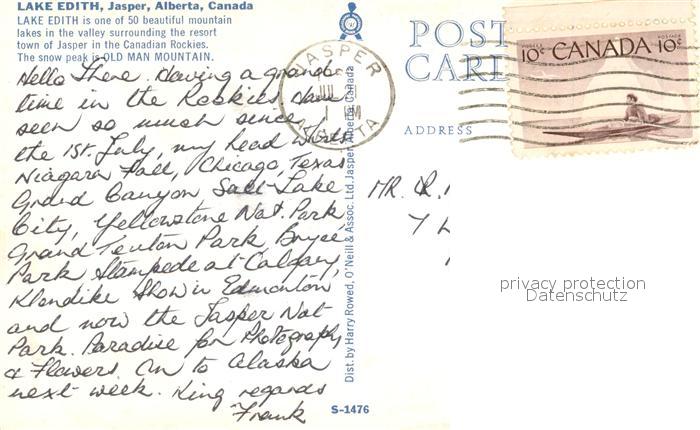 LAKE EDITH, Jasper, Alberta, Canada
LAKE EDITH is one of 50 beautiful mountain
lakes in the valley surrounding the resort
town of Jasper in the Canadian Rockies.
The snow peak is OLD MAN MOUNTAIN.
Hello There. Having a grande
time in the Rockies. Have
seen so much since
the 1st. July, my head whirls
Niagara Fall, Chicago, Texas
Grand Canyon Salt Lake
City, Yellowstone Nat. Park
Grand Teuton Park, Bryce
Park Stampede at Calgary,
Klondike Show in Edmonton
and now the Jasper Nat
Park. Paradise for Photography
& Flowers. On to Alaska
next week. King regards
Frank
Dist. by Harry Rowed, O'Neill & Assoc. Ltd. Jasper Alberta, Canada
S-1476
POST
CARD
ADDRESS
JASPER
ALBERTA
PM
POSTES POSTAGE
10¢ CANADA 10¢
MR. &
privacy protection
Datenschutz